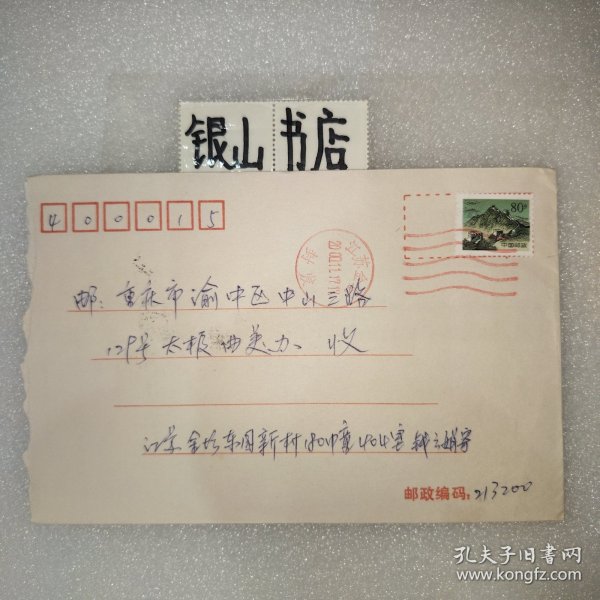 银山书店
400015
80分
中国邮政
2000.11.17
邮：重庆市渝中区中山三路
129号太极曲美办 收
江苏金坛东园新村180幢404室
邮政编码：213200
孔夫子旧书网
www.kongfz.com